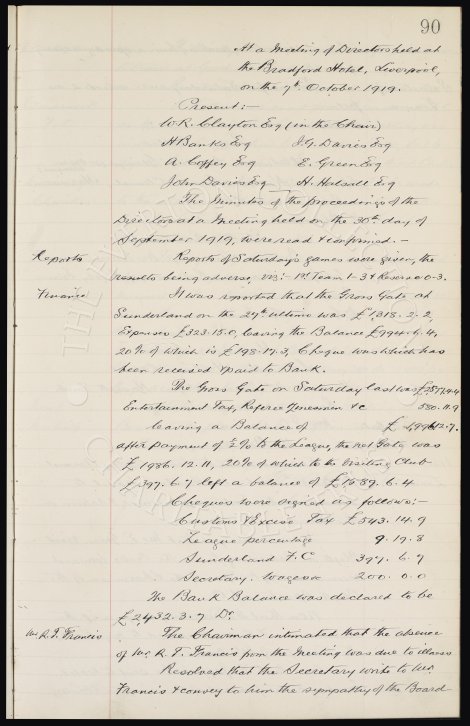 90
At a Meeting of Directors held at
the Bradford Hotel, Liverpool,
on the 7th October 1919.
Present:-
W.R. Clayton Esq (in the Chair)
H Banks Esq J.G. Davies Esq
A. Coffey Esq E. Green Esq
John Davies Esq H. Halsall Esq
The Minutes of the proceedings of the
Directors at a Meeting held on the 30th day of
September 1919, were read & confirmed. -
Reports Reports of Saturday's games were given, the
results being adverse, viz:- 1st Team 1-3 & Reserve 0-3.
Finance It was reported that the Gross Gate at
Sunderland on the 27th ultimo was £1318.2.2,
Expenses £323.15.0, leaving the Balance £994.6.4,
20% of which is £198.17.3, Cheque which has
been received & paid to Bank.
The Gross Gate on Saturday last was
Entertainment Tax, Referee Linesmen &c 580.11.9
leaving a Balance of £
after payment of ½% to the League, the net Gate was
£1986.12.11, 20% of which to the Visiting Club
£397.6.7 left a balance of £1589.6.4
Cheques were signed as follows:-
Customs & Excise Tax £543.14.9
League percentage 9.19.8
Sunderland F.C 397.6.7
Secretary. wages 200.0.0
The Bank Balance was declared to be
£2432.3.7 Dr.
Mr R.T. Francis The Chairman intimated that the absence
of Mr. R.T. Francis from the Meeting was due to illness
Resolved that the Secretary write to Mr.
Francis & convey to him the sympathy of the Board